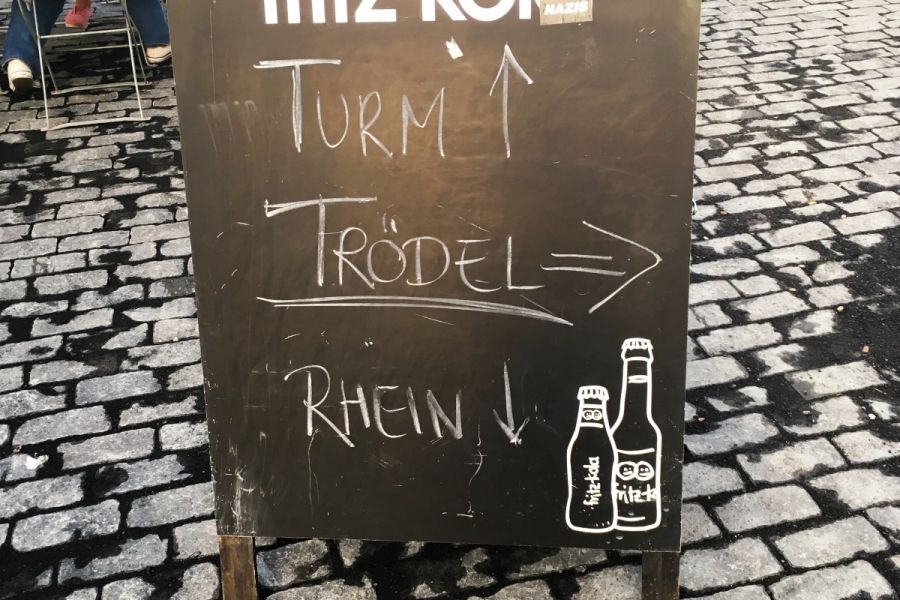 fritz-kola
NAZIS
TURM ↑
TRÖDEL ⇒
RHEIN ↓
fritz-kola
fritz-k